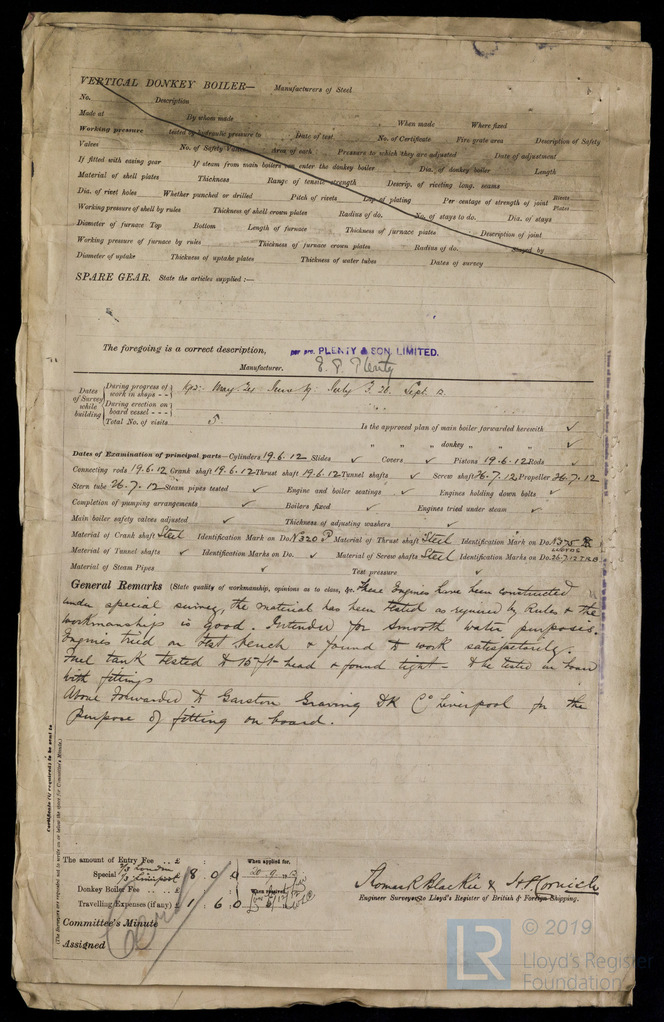 VERTICAL DONKEY BOILER— Manufacturers of Steel
No. Description
Made at By whom made When made Where fixed
Working pressure tested by hydraulic pressure to Date of test No. of Certificate Fire grate area Description of Safety
Valves No. of Safety Valves Area of each Pressure to which they are adjusted Date of adjustment
If fitted with easing gear If steam from main boilers can enter the donkey boiler Dia. of donkey boiler Length
Material of shell plates Thickness Range of tensile strength Descrip. of riveting long. seams
Dia. of rivet holes Whether punched or drilled Pitch of rivets Lap of plating Per centage of strength of joint Rivets Plates
Working pressure of shell by rules Thickness of shell crown plates Radius of do. No. of stays to do. Dia. of stays
Diameter of furnace Top Bottom Length of furnace Thickness of furnace plates Description of joint
Working pressure of furnace by rules Thickness of furnace crown plates Radius of do. Stayed by
Diameter of uptake Thickness of uptake plates Thickness of water tubes Dates of survey
SPARE GEAR. State the articles supplied :—
The foregoing is a correct description,
per pro. PLENTY & SON, LIMITED.
E. P. Plenty
Manufacturer.
Dates of Survey while building
During progress of work in shops - -
During erection on board vessel - - -
Total No. of visits 5
Is the approved plan of main boiler forwarded herewith ✓
" " " donkey " " ✓
Dates of Examination of principal parts—Cylinders 19.6.12 Slides ✓ Covers ✓ Pistons 19.6.12 Rods ✓
Connecting rods 19.6.12 Crank shaft 19.6.12 Thrust shaft 19.6.12 Tunnel shafts ✓ Screw shaft 26.7.12 Propeller 26.7.12
Stern tube 26.7.12 Steam pipes tested ✓ Engine and boiler seatings ✓ Engines holding down bolts ✓
Completion of pumping arrangements ✓ Boilers fixed ✓ Engines tried under steam ✓
Main boiler safety valves adjusted ✓ Thickness of adjusting washers ✓
Material of Crank shaft Steel Identification Mark on Do. Material of Thrust shaft Steel Identification Mark on Do.
Material of Tunnel shafts ✓ Identification Marks on Do. ✓ Material of Screw shafts Steel Identification Marks on Do. 26.7.12
Material of Steam Pipes ✓ Test pressure ✓
General Remarks (State quality of workmanship, opinions as to class, &c. These Engines have been constructed
under special survey, the material has been tested as required by Rules & the
workmanship is good. Intended for smooth water purposes.
Engines tried on test bench & found to work satisfactorily.
Fuel tank tested to 15 ft head & found tight - to be tested on board
with fittings
Above Forwarded to Garston Graving Dk Co Liverpool for the
purpose of fitting on board.
Certificate (if required) to be sent to
(The Surveyors are requested not to write on or below the space for Committee's Minute.)
The amount of Entry Fee .. £ : : When applied for,
Special 2/3 London 1/3 Liverpool £ 8 : 0 : 0
Donkey Boiler Fee .. .. £ : : When received,
Travelling Expenses (if any) £ 1 : 6 : 0
Thomas R Blackie & H P Cornish
Engineer Surveyors to Lloyd's Register of British & Foreign Shipping.
Committee's Minute
Assigned
LR
© 2019
Lloyd's Register
Foundation